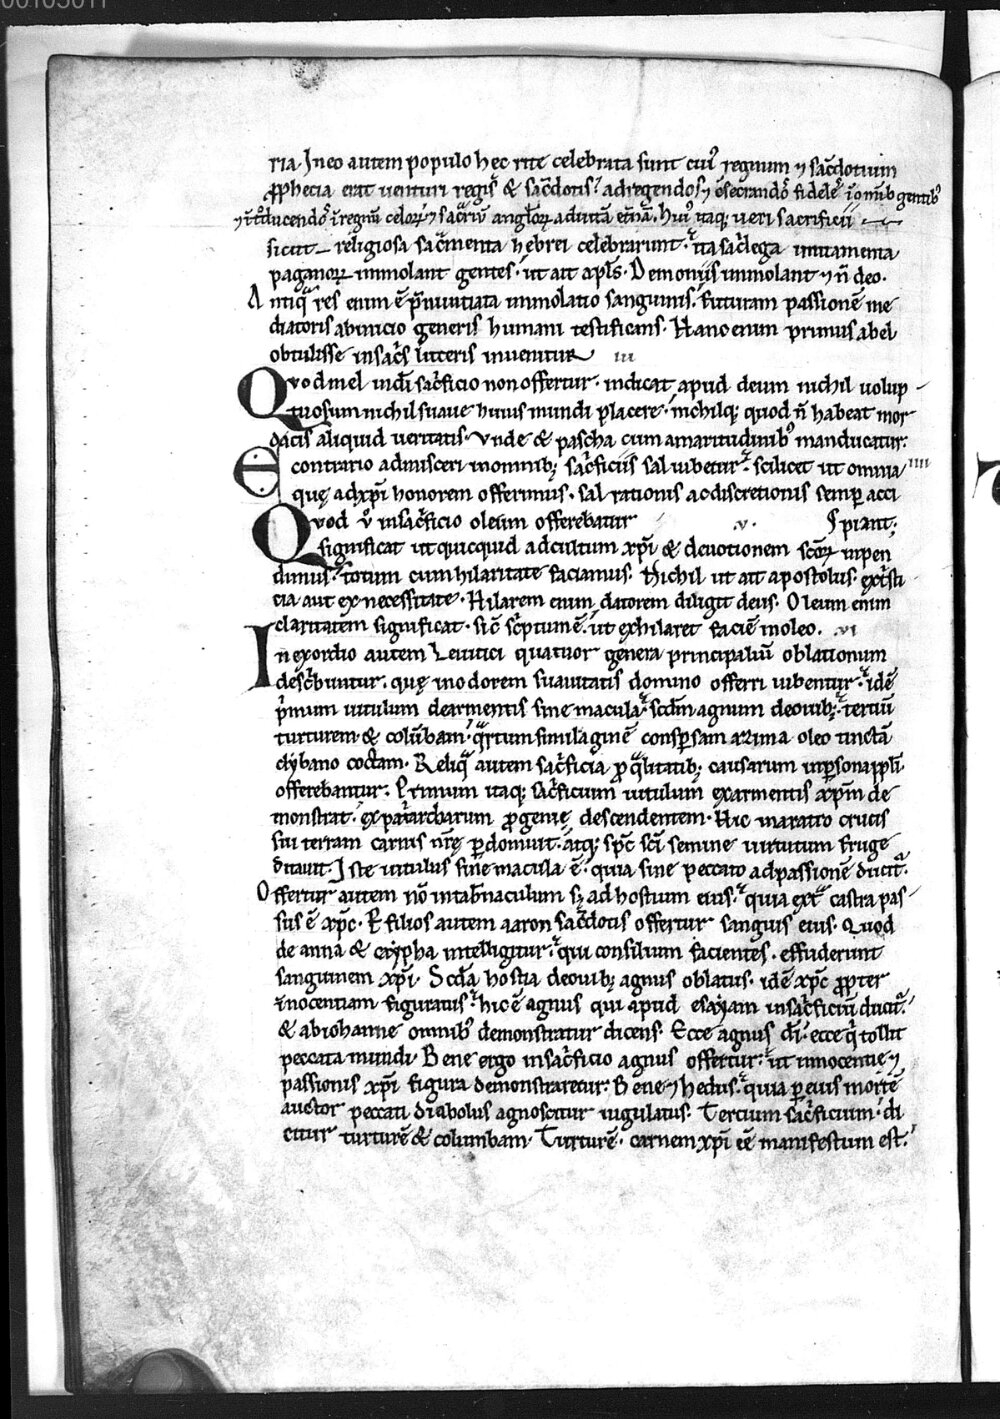 ria. In eo autem populo hec rite celebrata sunt cuiꝰ regnum ⁊ sac̄dotium
ꝓphecia erat uenturi regis̄ & sac̄dotis. ad regendos ⁊ ꝯsecrandos̄ fidele᷒ ī om̄ib gentibꝰ
⁊ īt͛ducendos̄ ī regnū celoꝝ ⁊ sac̄riū angl̄oꝝ ad uitā et̄nā. huiꝰ itaq; ueri sacrificii
sicut religiosa sac̄menta hebrei celebrarunt. ita sac̄lega imitamenta
paganoꝝ immolant gentes. ut ait apl̄s. Demoniis immolant ⁊ n̄ deo.
Antiqͣ res enim ē p̄nuntiata immolatio sanguinis. futuram passionē me
diatoris ab inicio generis humani testificans. Hanc enim primus abel
obtulisse in sac̄s litteris inuenitur iii
Quod mel in di sac̄ficio non offertur. indicat apud deum nichil uolup
tuosum nichil suaue huius mundi placere. nichilq; quod n̄ habeat mor
dacis aliquid ueritatis. Vnde & pascha cum amaritudinibꝰ manducatur.
E contrario admisceri in omnib; sac̄ficiis sal iubetur. scilicet ut omnia iiii
quę ad xp̄i honorem offerimus. sal rationis ac discretionis semꝑ acci
Quod ū in sac̄ficio oleum offerebatur v. piant;
significat ut quicquid ad cultum xp̄i & deuotionem sc̄oꝝ inpen
dimus. totum cum hilaritate faciamus. Nichil ut ait apostolus. ex t͛sti
cia aut ex necessitate. Hilarem enim datorem diligit deus. Oleum enim
claritatem significat. sic̄ sc̄ptum ē. ut exhilaret faciē in oleo. vi
In exordio autem Leuitici quatuor genera principaliū oblationum
desc̄buntur. quę in odorem suauitatis domino offerri iubentur. idē
p̄mum uitulum de armentis sine macula. sc̄dm agnum de ouib;. tertiū
turturem & colūbam. qͣrtum similaginē consꝑsam azima oleo tinctā
clybano coctam. Reliqͣ autem sac̄ficia ꝓ qͣlitatib; causarum in ꝑsona ppl̄i
offerebantur. Primum itaq; sac̄ficium uitulum ex armentis xp̄m de
monstrat. ex patͥarcharum ꝓgenie descendentem. Hic in aratro crucis
sui terram carnis nr̄ę ꝑdomuit. atq; sp̄c sc̄i semine uirtutum fruge
ditauit. Iste uitulus sine macula ē. quia sine peccato ad passionē ducit᷑.
Offertur autem nō in tab̄naculum sꝫ ad hostium eius. quia extͣ castra pas
sus ē xp̄c. Et filios autem aaron sac̄dotis offertur sanguis eius. Quod
de anna & caypha intelligitur. qui consilium facientes. effuderunt
sanguinem xp̄i. Sc̄da hostia de ouib; agnus oblatus. idē xp̄c ꝓpter
īnocentiam figuratus. hic ē agnus qui apud esayam in sac̄ficiū ducit᷑.
& ab iohanne omnibꝰ demonstratur dicens. Ecce agnus di̅. ecce qͥ tollit
peccata mundi. Bene ergo in sac̄ficio agnus offertur. ut innocentię ⁊
passionis xp̄i figura demonstraretur. Bene ⁊ hedus. quia ꝑ eius mortē
auctor peccati diabolus agnoscitur iugulatus. Tercium sac̄ficium. di
citur turturē & columbam. Turturē. carnem xp̄i eē manifestum est.